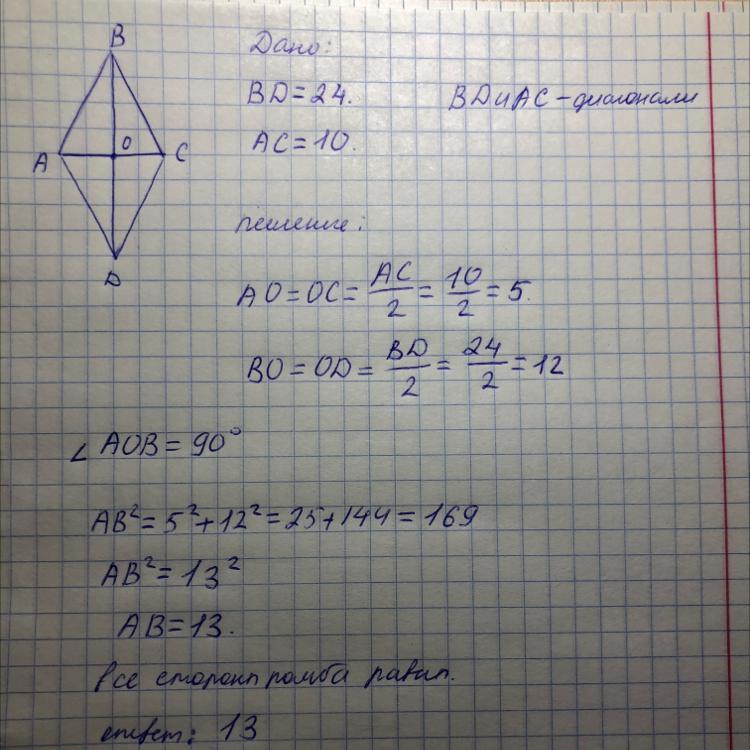 B
A
O
C
D
Дано:
BD = 24.
BD и AC - диагонали
AC = 10.
решение:
AO = OC = AC/2 = 10/2 = 5.
BO = OD = BD/2 = 24/2 = 12
∠ AOB = 90°
AB² = 5² + 12² = 25 + 144 = 169
AB² = 13²
AB = 13.
все стороны ромба равны.
ответ: 13